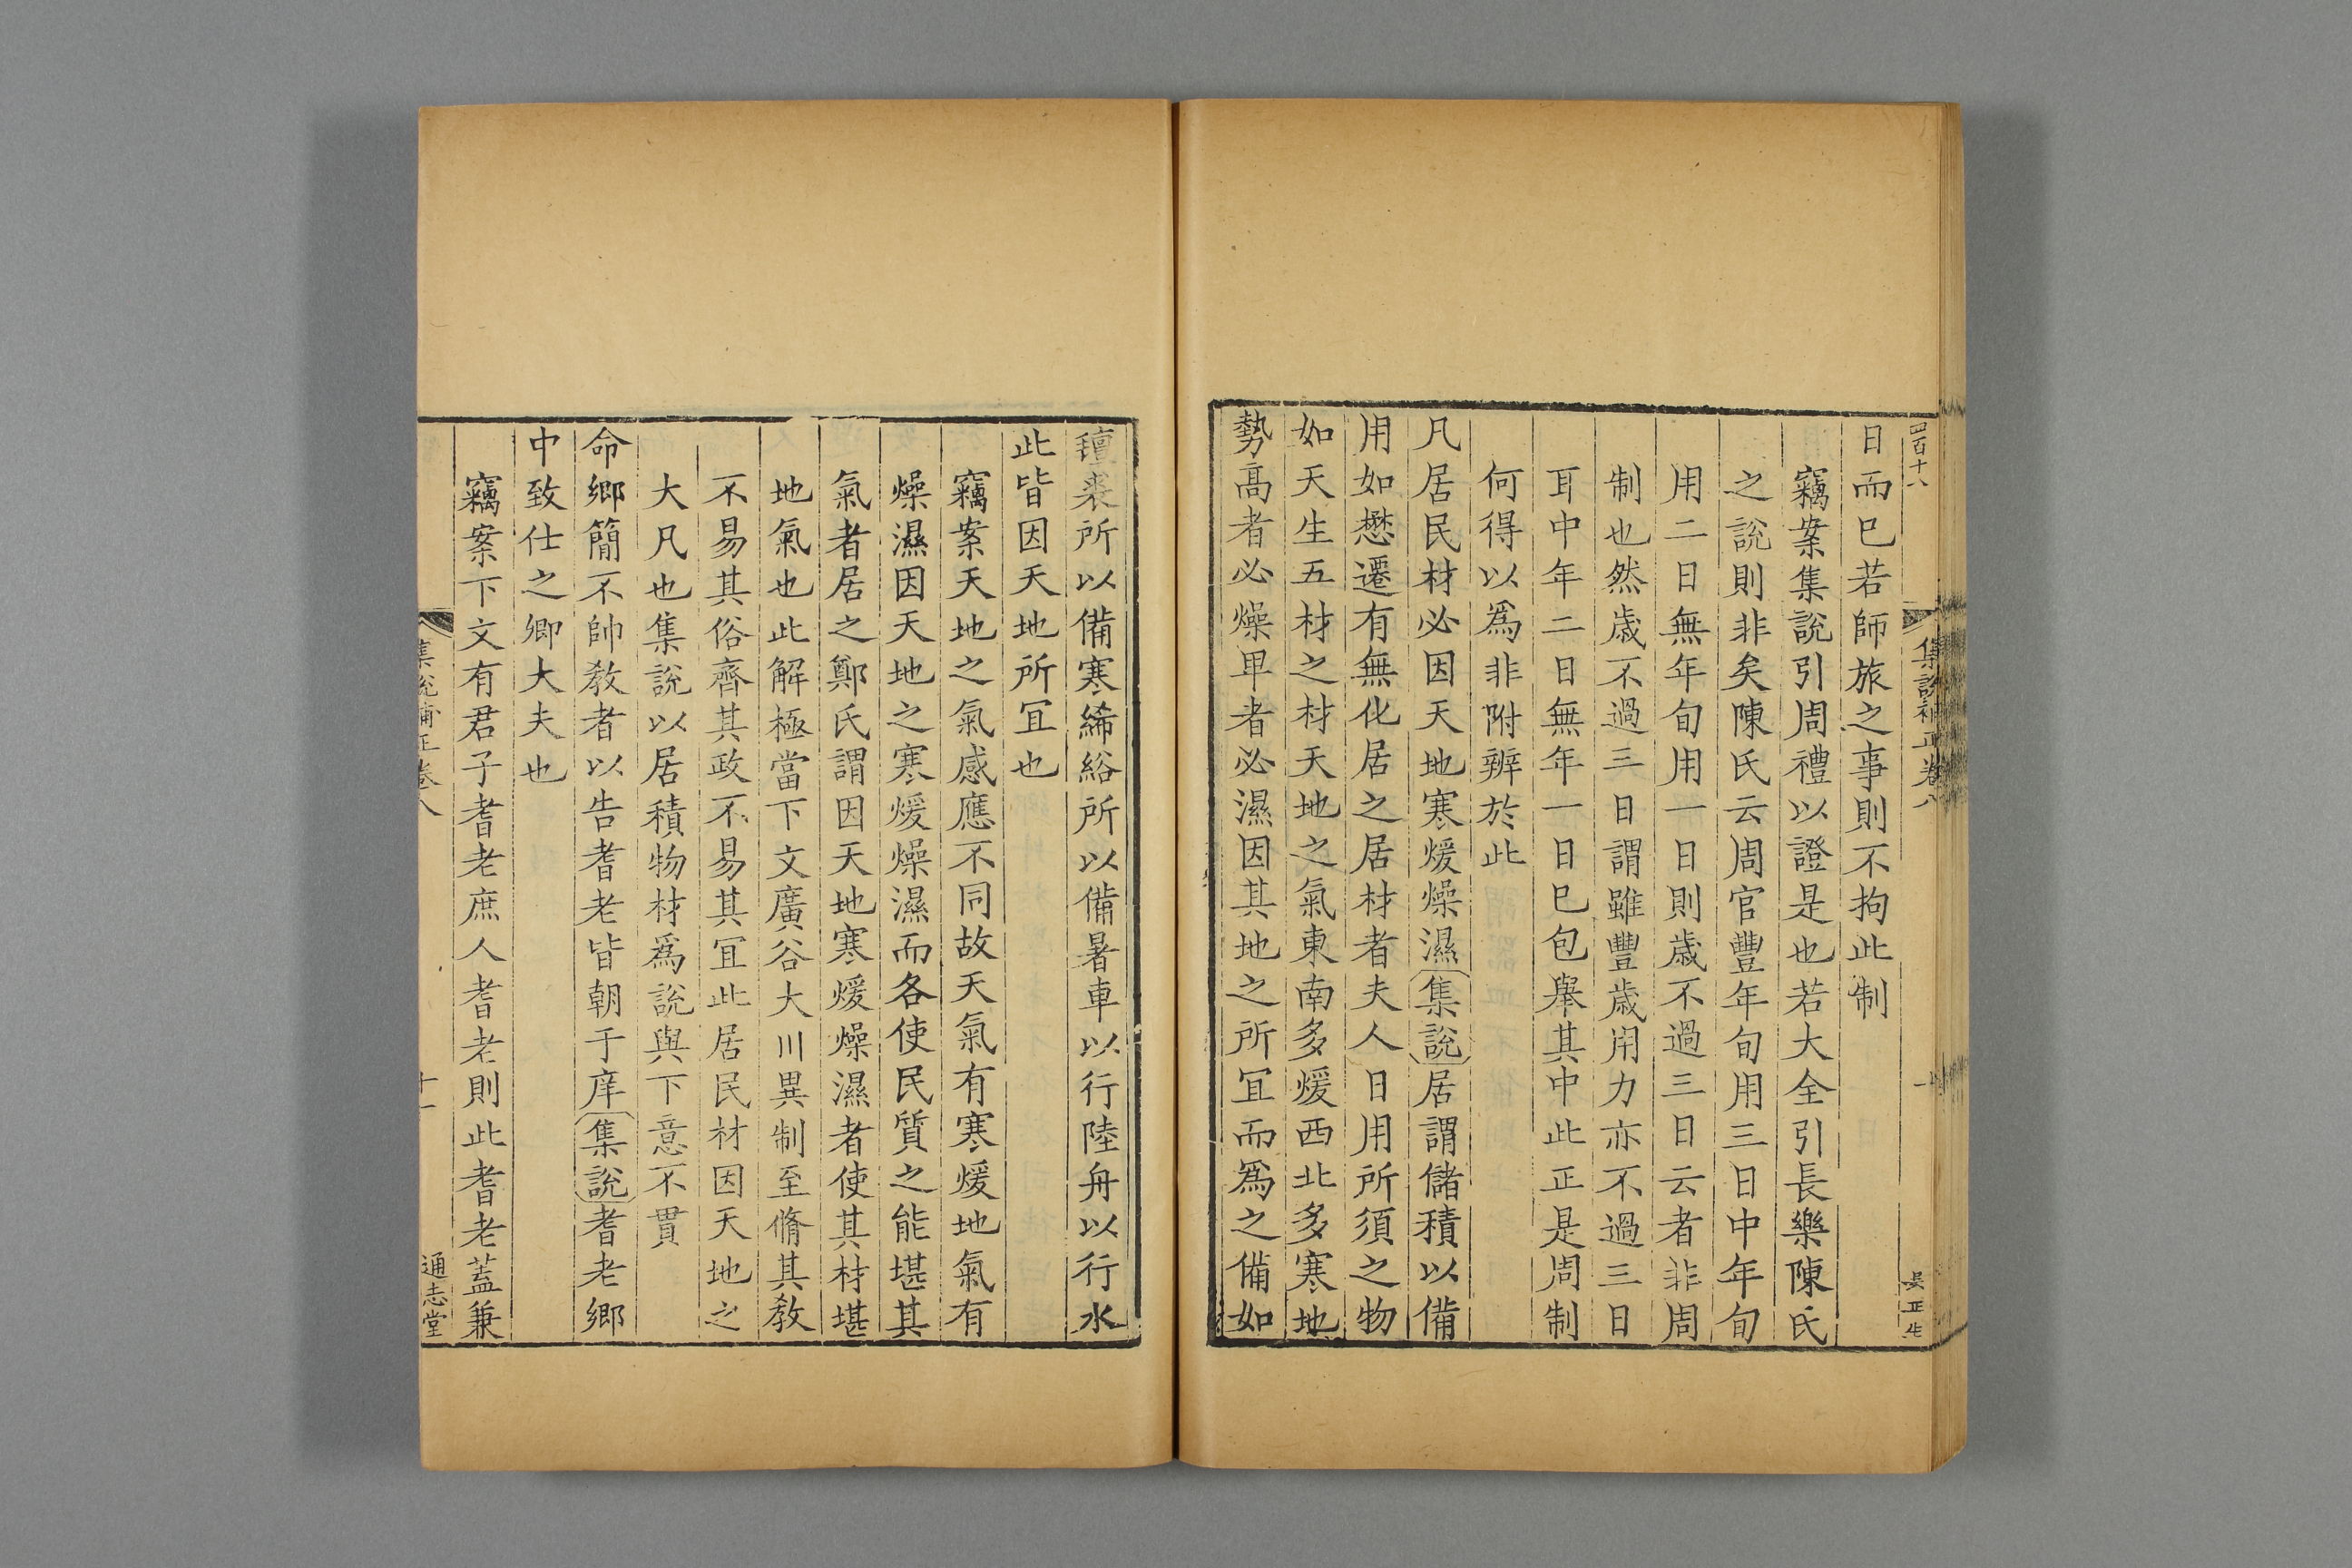 四百十八
集說補正卷八
吳正生
日而已若師旅之事則不拘此制
竊案集說引周禮以證是也若大全引長樂陳氏
之說則非矣陳氏云周官豐年旬用三日中年旬
用二日無年旬用一日則歲不過三日云者非周
制也然歲不過三日謂雖豐歲用力亦不過三日
耳中年二日無年一日已包舉其中此正是周制
何得以爲非附辨於此
凡居民材必因天地寒煖燥濕集說居謂儲積以備
用如懋遷有無化居之居材者夫人日用所須之物
如天生五材之材天地之氣東南多煖西北多寒地
勢高者必燥卑者必濕因其地之所宜而爲之備如
氊裘所以備寒絺綌所以備暑車以行陸舟以行水
此皆因天地所宜也
竊案天地之氣感應不同故天氣有寒煖地氣有
燥濕因天地之寒煖燥濕而各使民質之能堪其
氣者居之鄭氏謂因天地寒煖燥濕者使其材堪
地氣也此解極當下文廣谷大川異制至脩其敎
不易其俗齊其政不易其宜此居民材因天地之
大凡也集說以居積物材爲說與下意不貫
命鄉簡不帥敎者以告耆老皆朝于庠集說耆老鄉
中致仕之卿大夫也
竊案下文有君子耆老庶人耆老則此耆老蓋兼
集說補正卷八
十一
通志堂